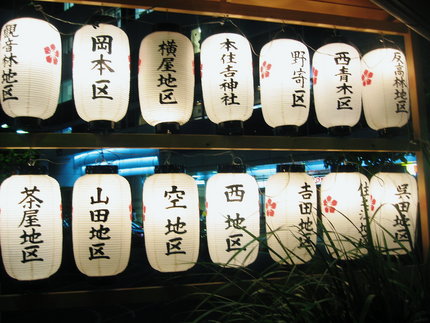 観音林地区
岡本地区
横屋地区
本住吉神社
野寄地区
西青木区
反高林地区
茶屋地区
山田地区
空地区
西地区
吉田地区
呉田地区